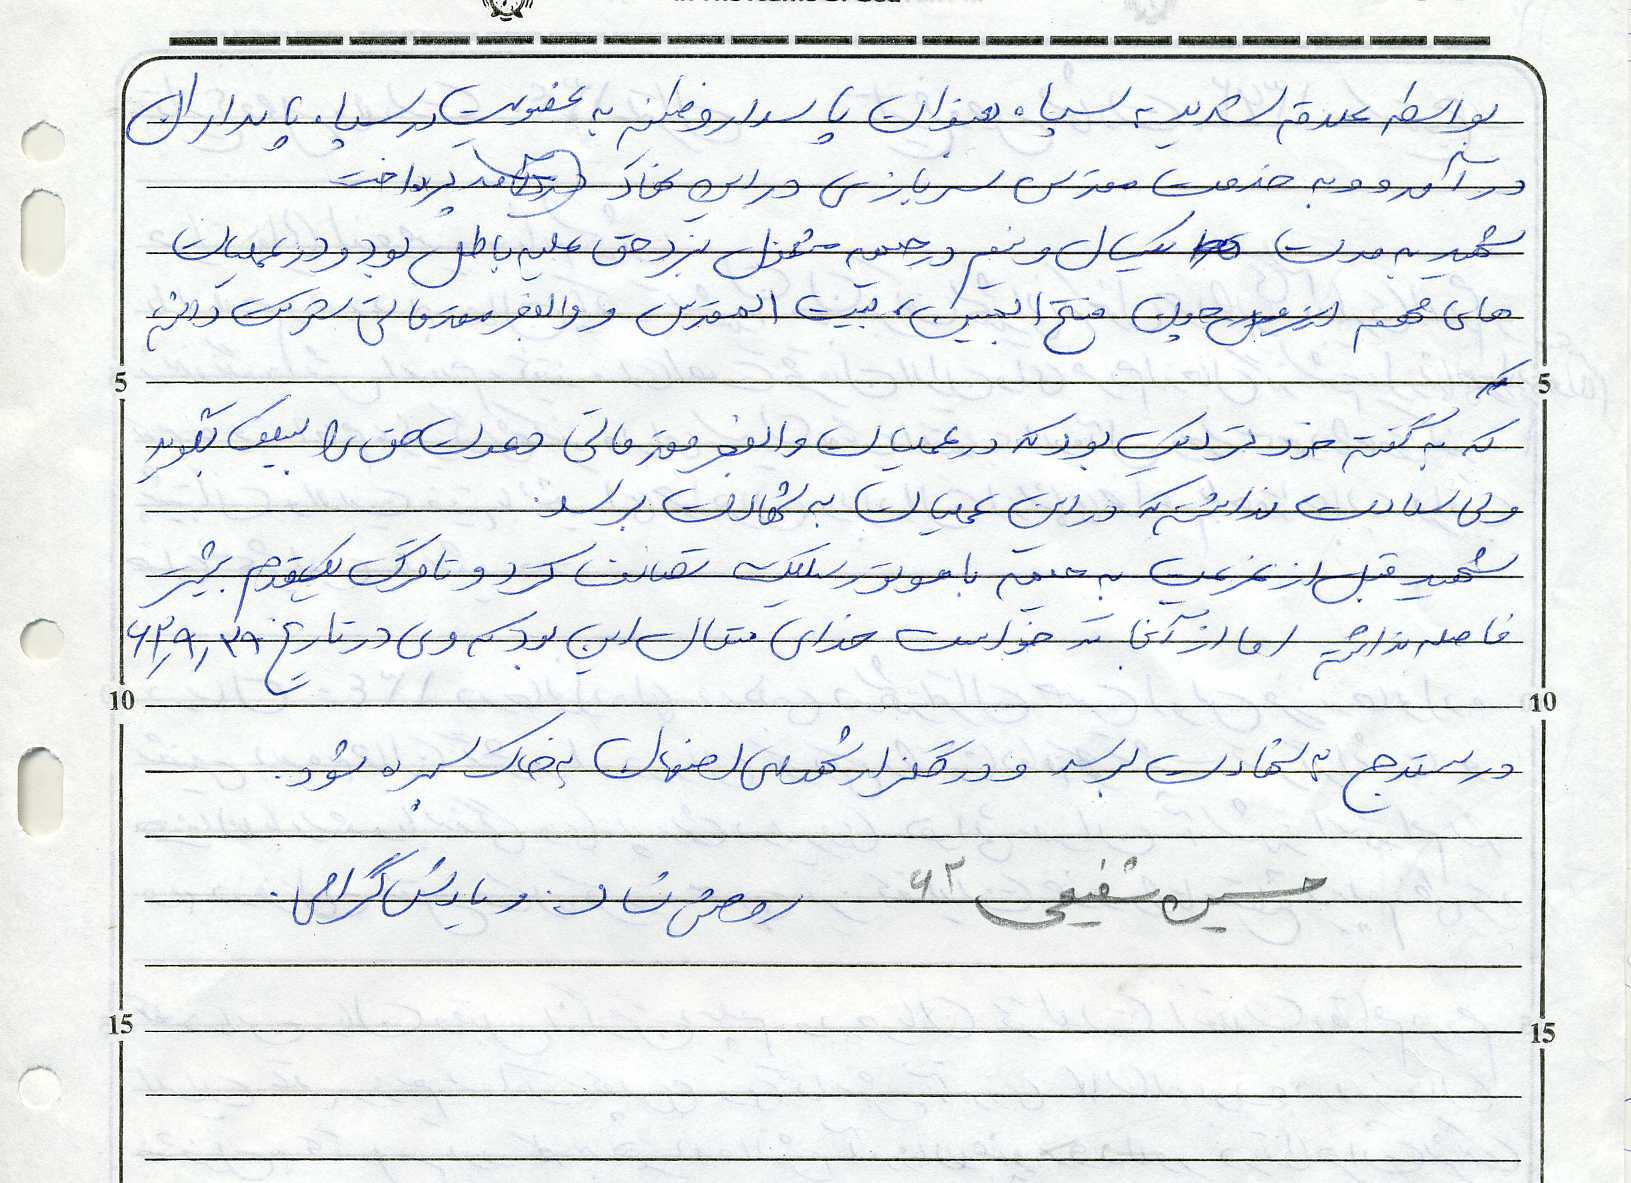 In The Name Of God
بواسطه علاقه شدید به سپاه بعنوان پاسدار وظیفه به عضویت در سپاه پاسداران
در آمد و و به خدمت مقدس سربازی در این نهاد پرداخت
شهید به مدت یکسال و نیم در جبهه مشغول نبرد حق علیه باطل بود و در عملیات
های مهم چون فتح المبین، بیت المقدس و والفجر مقدماتی شرکت داشته
که
که به گفته خود نزدیک بود که در عملیات والفجر مقدماتی دعوت حق را لبیک بگوید
ولی سعادت نداشته که در این عملیات به شهادت برسد.
شهید قبل از عزیمت به جبهه با موتور سیکلت تصادف کرد و تا مرگ یکقدم بیشتر
فاصله نداشته اما از آنجا که خواست خدای متعال این بود که وی در تاریخ ۶۲,۹,۲۹
در سنندج به شهادت برسد و در گلزار شهدای اصفهان به خاک سپرده شود.
حسین شفیعی ۶۲
روحش شاد و یادش گرامی.
5
5
10
10
15
15